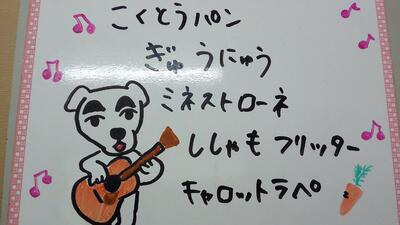 こくとうパン
ぎゅうにゅう
ミネストローネ
ししゃもフリッター
キャロットラペ